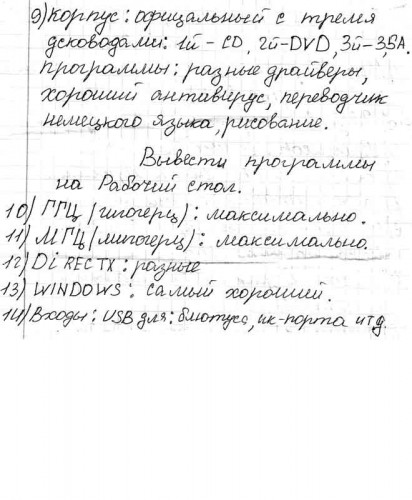 9) Корпус: офицальный с тремя
дсководами: 1й - CD, 2й - DVD, 3й - 3,5А.
программы: разные драйверы,
хороший антивирус, переводчик
немецкого языка, рисование.
Вывести программы
на Рабочий стол.
10) ГГЦ (гигогерц): максимально.
11) МГЦ (мигогерц): максимально.
12) DiRECTX: разные
13) WINDOWS: самый хороший.
14) Входы: USB для: блютуса, ик-порта итд.